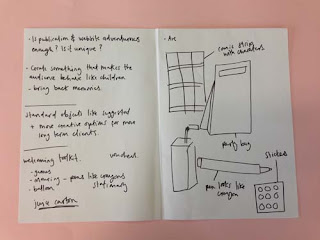 - Is publication & website adventurous
enough? Is it unique?
- Create something that makes the
audience behave like children
- bring back memories.
standard objects like suggested
+ more creative options for more
long term clients.
welcoming toolkit. vouchers
- games
- colouring - pens like crayons
- balloon stationary
juice carton
- Arc
comic strip
with characters
party bag
stickers
pen looks like
crayon